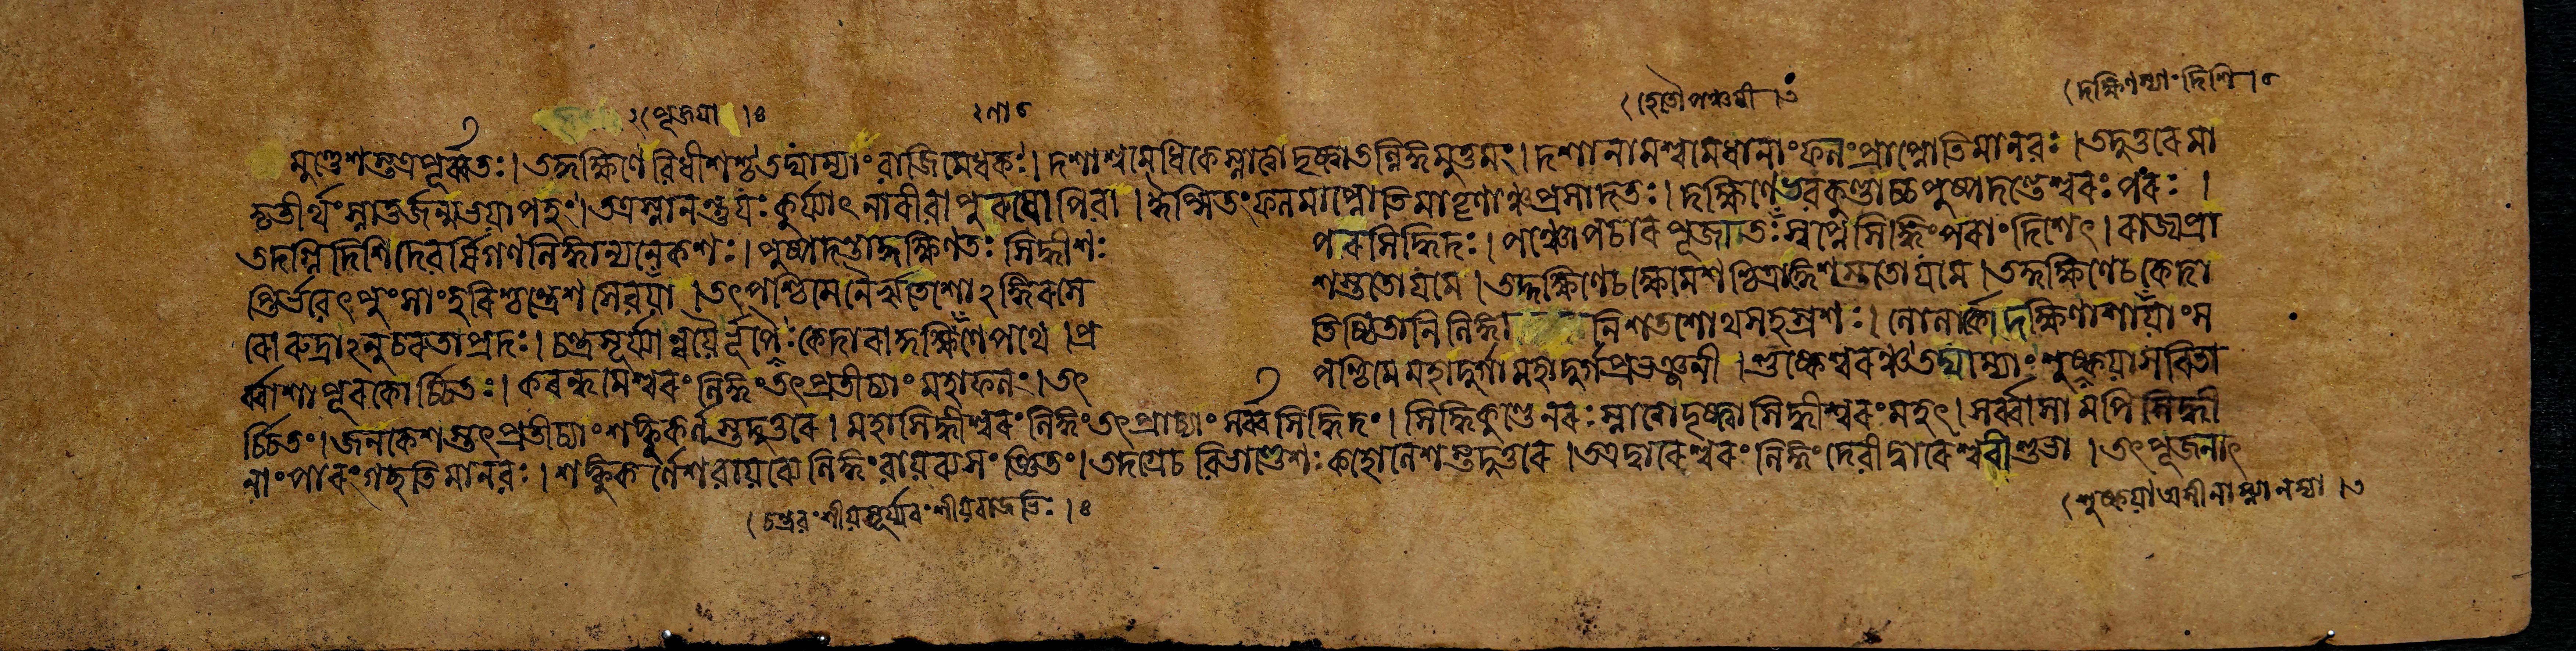 (পূজয়া।৪
ণা৫
(হেতৌ পঞ্চমী।৩
(দক্ষিণস্যাং দিশি।৫
মুণ্ডেশস্তত্রপূর্ব্বতঃ। তদ্দক্ষিণে বিধীশশ্চ তদ্যাম্যাং বাজিমেধকঃ। দশাশ্বমেধিকে স্নাত্বা দৃষ্ট্বা তল্লিঙ্গমুত্তমং। দশানামশ্বমেধানাং ফলং প্রাপ্নোতি মানবঃ। তদুত্তরে মা
তৃতীর্থং স্নাতুর্জন্মভয়াপহং। তত্র স্নানন্তু যঃ কুর্য্যাৎ নারী বা পুরুষোপি বা। ঈপ্সিতং ফলমাপ্নোতি মাতৄণাঞ্চ প্রসাদতঃ। দক্ষিণে ভবকুণ্ডাচ্চ পুষ্পদন্তেশ্বরঃ পরঃ।
তদগ্নিদিশি দেবর্ষিগণলিঙ্গান্যনেকশঃ। পুষ্পদন্তাদ্দক্ষিণতঃ সিদ্ধীশঃ পরসিদ্ধিদঃ। পঞ্চোপচারপূজাতঃ স্বপ্নে সিদ্ধিং পরাং দিশেৎ। রাজ্যপ্রা
প্তির্ভবেৎ পুংসাং হরিশ্চন্দ্রেশসেবয়া। তৎপশ্চিমে নৈরৃতেশোঽঙ্গিরসে শস্ততো যমে। তদ্দক্ষিণে চ ক্ষেমেশশ্চিত্রাঙ্গেশস্ততো যমে। তদ্দক্ষিণে চ কেদা
রো রুদ্রাঽনুচরতাপ্রদঃ। চন্দ্রসূর্য্যান্বয়ৈর্নৃপৈঃ কেদারাদ্দক্ষিণে পথে। প্র তিষ্ঠিতানি লিঙ্গা নি শতশোথ সহস্রশঃ। লোলার্কো দক্ষিণাশায়াং স
র্ব্বাশাপূরকোর্চ্চিতঃ। করন্ধমেশ্বরং লিঙ্গং তৎপ্রতীচ্যাং মহাফলং। তৎ পশ্চিমে মহাদুর্গা মহাদুর্গপ্রভঞ্জনী। শুষ্কেশ্বরঞ্চ তদ্যাম্যাং শুষ্কয়া সরিতা
র্চ্চিতং। জনকেশস্তৎপ্রতীচ্যাং শঙ্কুকর্ণস্তদুত্তরে। মহাসিদ্ধীশ্বরং লিঙ্গং তৎপ্রাচ্যাং সর্ব্বসিদ্ধিদং। সিদ্ধিকুণ্ডে নরঃ স্নাতো দৃষ্ট্বা সিদ্ধীশ্বরং মহৎ। সর্ব্বাসামপি সিদ্ধী
নাং পারং গচ্ছতি মানবঃ। শঙ্কুকর্ণেশবায়ব্যে লিঙ্গং বায়ব্যসংজ্ঞিতং। তদগ্রে চ বিভাণ্ডেশঃ কহোলেশস্তদুত্তরে। তত্র দ্বারেশ্বরং লিঙ্গং দেবী দ্বারেশ্বরী শুভা। তৎপূজনাৎ
(চন্দ্রবংশীয়সূর্য্যবংশীয়রাজভিঃ।৪
(শুষ্কয়া অসীনাম্না নদ্যা।৩